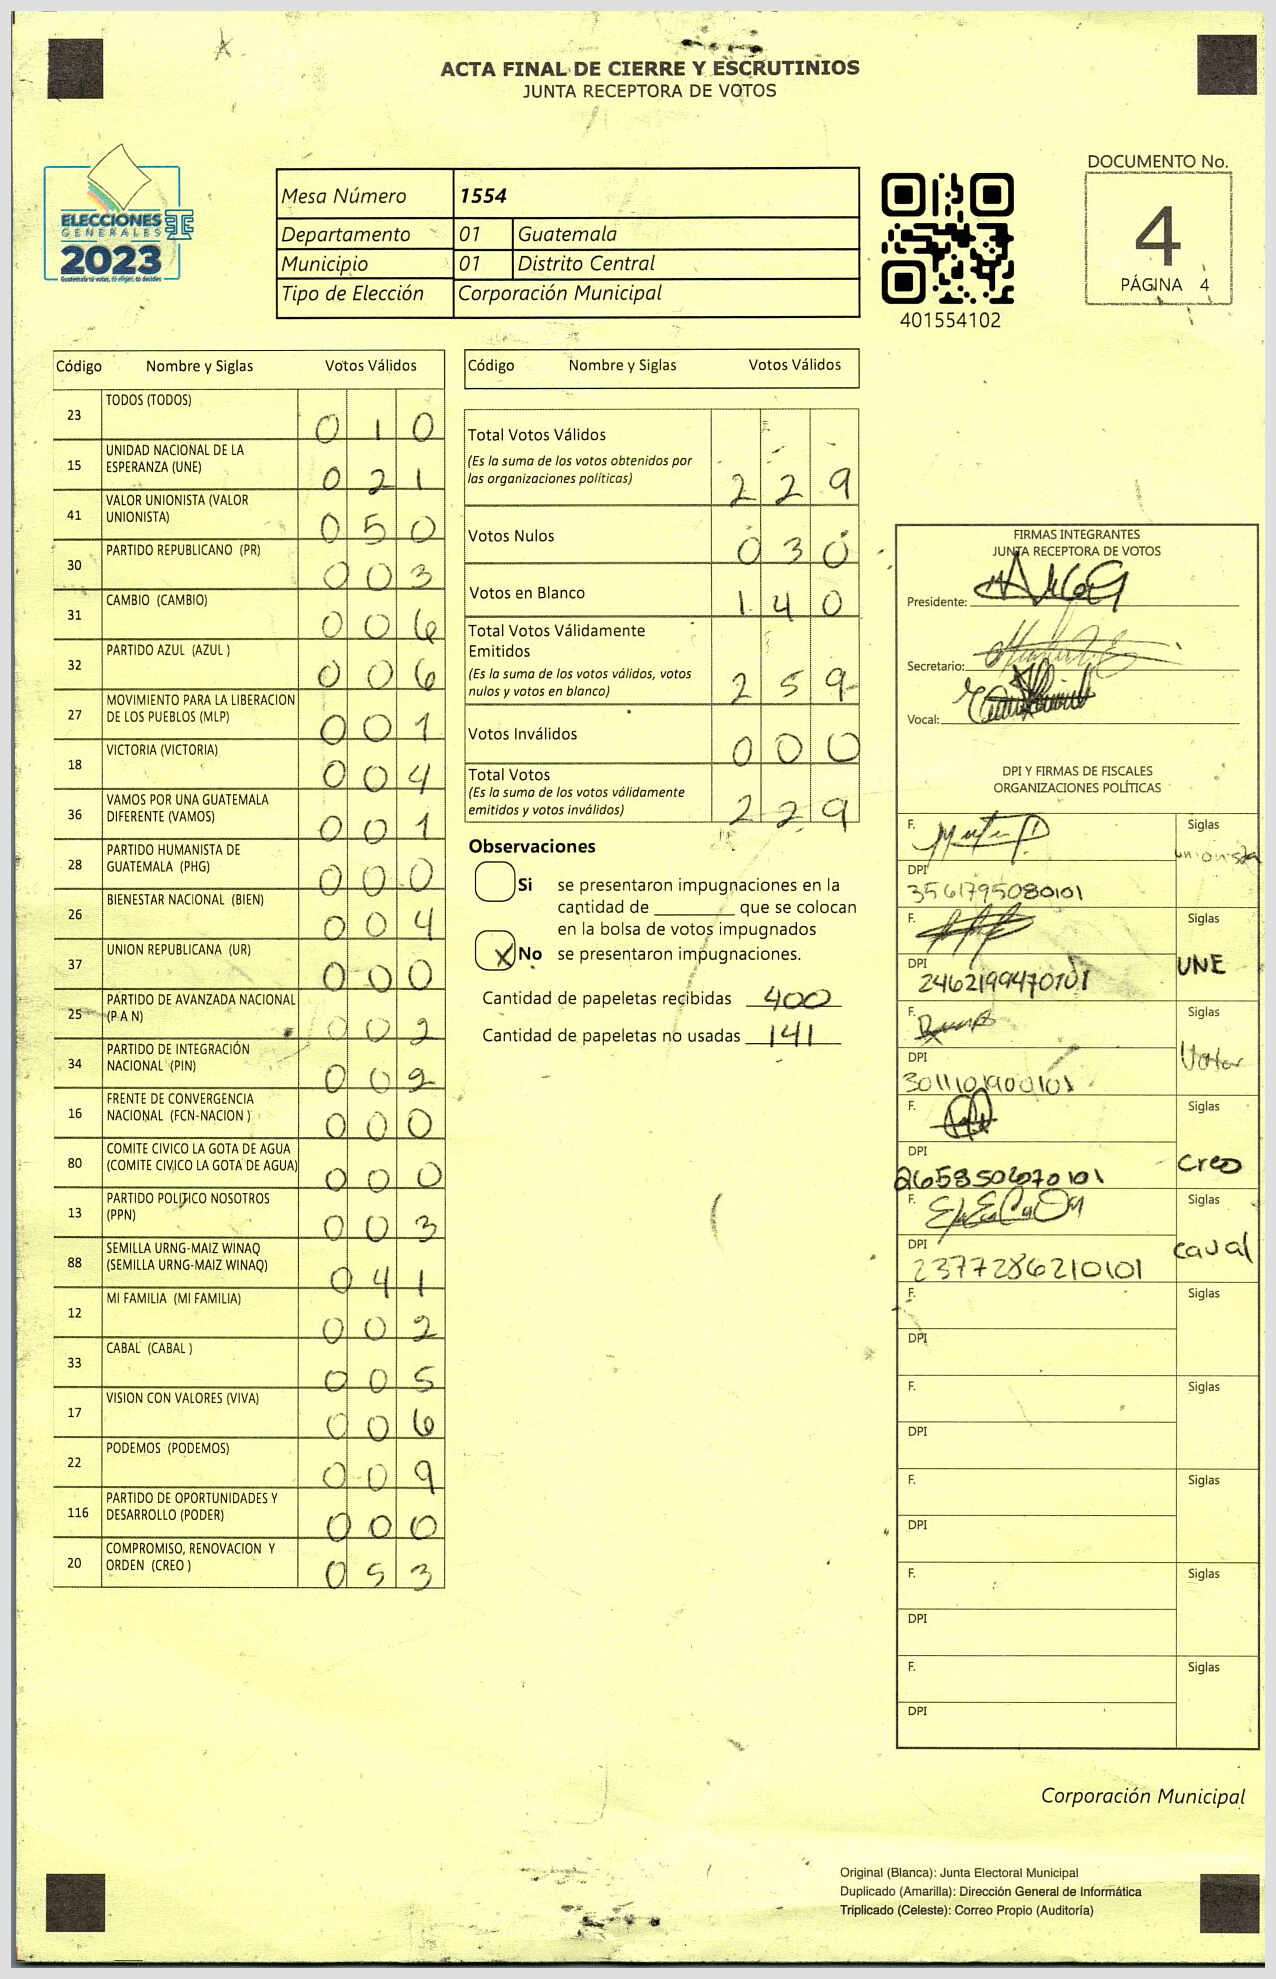 ACTA FINAL DE CIERRE Y ESCRUTINIOS
JUNTA RECEPTORA DE VOTOS
ELECCIONES
GENERALES
2023
Guatemala tú votas, tú eliges, tú decides
Mesa Número 1554
Departamento 01 Guatemala
Municipio 01 Distrito Central
Tipo de Elección Corporación Municipal
401554102
DOCUMENTO No.
4
PÁGINA 4
Código Nombre y Siglas Votos Válidos
23 TODOS (TODOS) 0 1 0
15 UNIDAD NACIONAL DE LA
ESPERANZA (UNE) 0 2 1
41 VALOR UNIONISTA (VALOR
UNIONISTA) 0 5 0
30 PARTIDO REPUBLICANO (PR) 0 0 3
31 CAMBIO (CAMBIO) 0 0 6
32 PARTIDO AZUL (AZUL ) 0 0 6
27 MOVIMIENTO PARA LA LIBERACION
DE LOS PUEBLOS (MLP) 0 0 1
18 VICTORIA (VICTORIA) 0 0 4
36 VAMOS POR UNA GUATEMALA
DIFERENTE (VAMOS) 0 0 1
28 PARTIDO HUMANISTA DE
GUATEMALA (PHG) 0 0 0
26 BIENESTAR NACIONAL (BIEN) 0 0 4
37 UNION REPUBLICANA (UR) 0 0 0
25 PARTIDO DE AVANZADA NACIONAL
(P A N) 0 0 2
34 PARTIDO DE INTEGRACIÓN
NACIONAL (PIN) 0 0 2
16 FRENTE DE CONVERGENCIA
NACIONAL (FCN-NACION ) 0 0 0
80 COMITE CIVICO LA GOTA DE AGUA
(COMITE CIVICO LA GOTA DE AGUA) 0 0 0
13 PARTIDO POLITICO NOSOTROS
(PPN) 0 0 3
88 SEMILLA URNG-MAIZ WINAQ
(SEMILLA URNG-MAIZ WINAQ) 0 4 1
12 MI FAMILIA (MI FAMILIA) 0 0 2
33 CABAL (CABAL ) 0 0 5
17 VISION CON VALORES (VIVA) 0 0 6
22 PODEMOS (PODEMOS) 0 0 9
116 PARTIDO DE OPORTUNIDADES Y
DESARROLLO (PODER) 0 0 0
20 COMPROMISO, RENOVACION Y
ORDEN (CREO ) 0 5 3
Código Nombre y Siglas Votos Válidos
Total Votos Válidos
(Es la suma de los votos obtenidos por
las organizaciones políticas) 2 2 9
Votos Nulos 0 3 0
Votos en Blanco 1 4 0
Total Votos Válidamente
Emitidos
(Es la suma de los votos válidos, votos
nulos y votos en blanco) 2 5 9
Votos Inválidos 0 0 0
Total Votos
(Es la suma de los votos válidamente
emitidos y votos inválidos) 2 2 9
Observaciones
Si se presentaron impugnaciones en la
cantidad de ________ que se colocan
en la bolsa de votos impugnados
X No se presentaron impugnaciones.
Cantidad de papeletas recibidas 400
Cantidad de papeletas no usadas 141
FIRMAS INTEGRANTES
JUNTA RECEPTORA DE VOTOS
Presidente:
Secretario:
Vocal:
DPI Y FIRMAS DE FISCALES
ORGANIZACIONES POLÍTICAS
F. Siglas
unionista
DPI
3561795080101
F. Siglas
DPI UNE
2462199470101
F. Siglas
DPI Valor
3011101900101
F. Siglas
DPI Creo
2658506070101
F. Siglas
DPI caval
2377286210101
F. Siglas
DPI
F. Siglas
DPI
F. Siglas
DPI
F. Siglas
DPI
F. Siglas
DPI
Corporación Municipal
Original (Blanca): Junta Electoral Municipal
Duplicado (Amarilla): Dirección General de Informática
Triplicado (Celeste): Correo Propio (Auditoría)